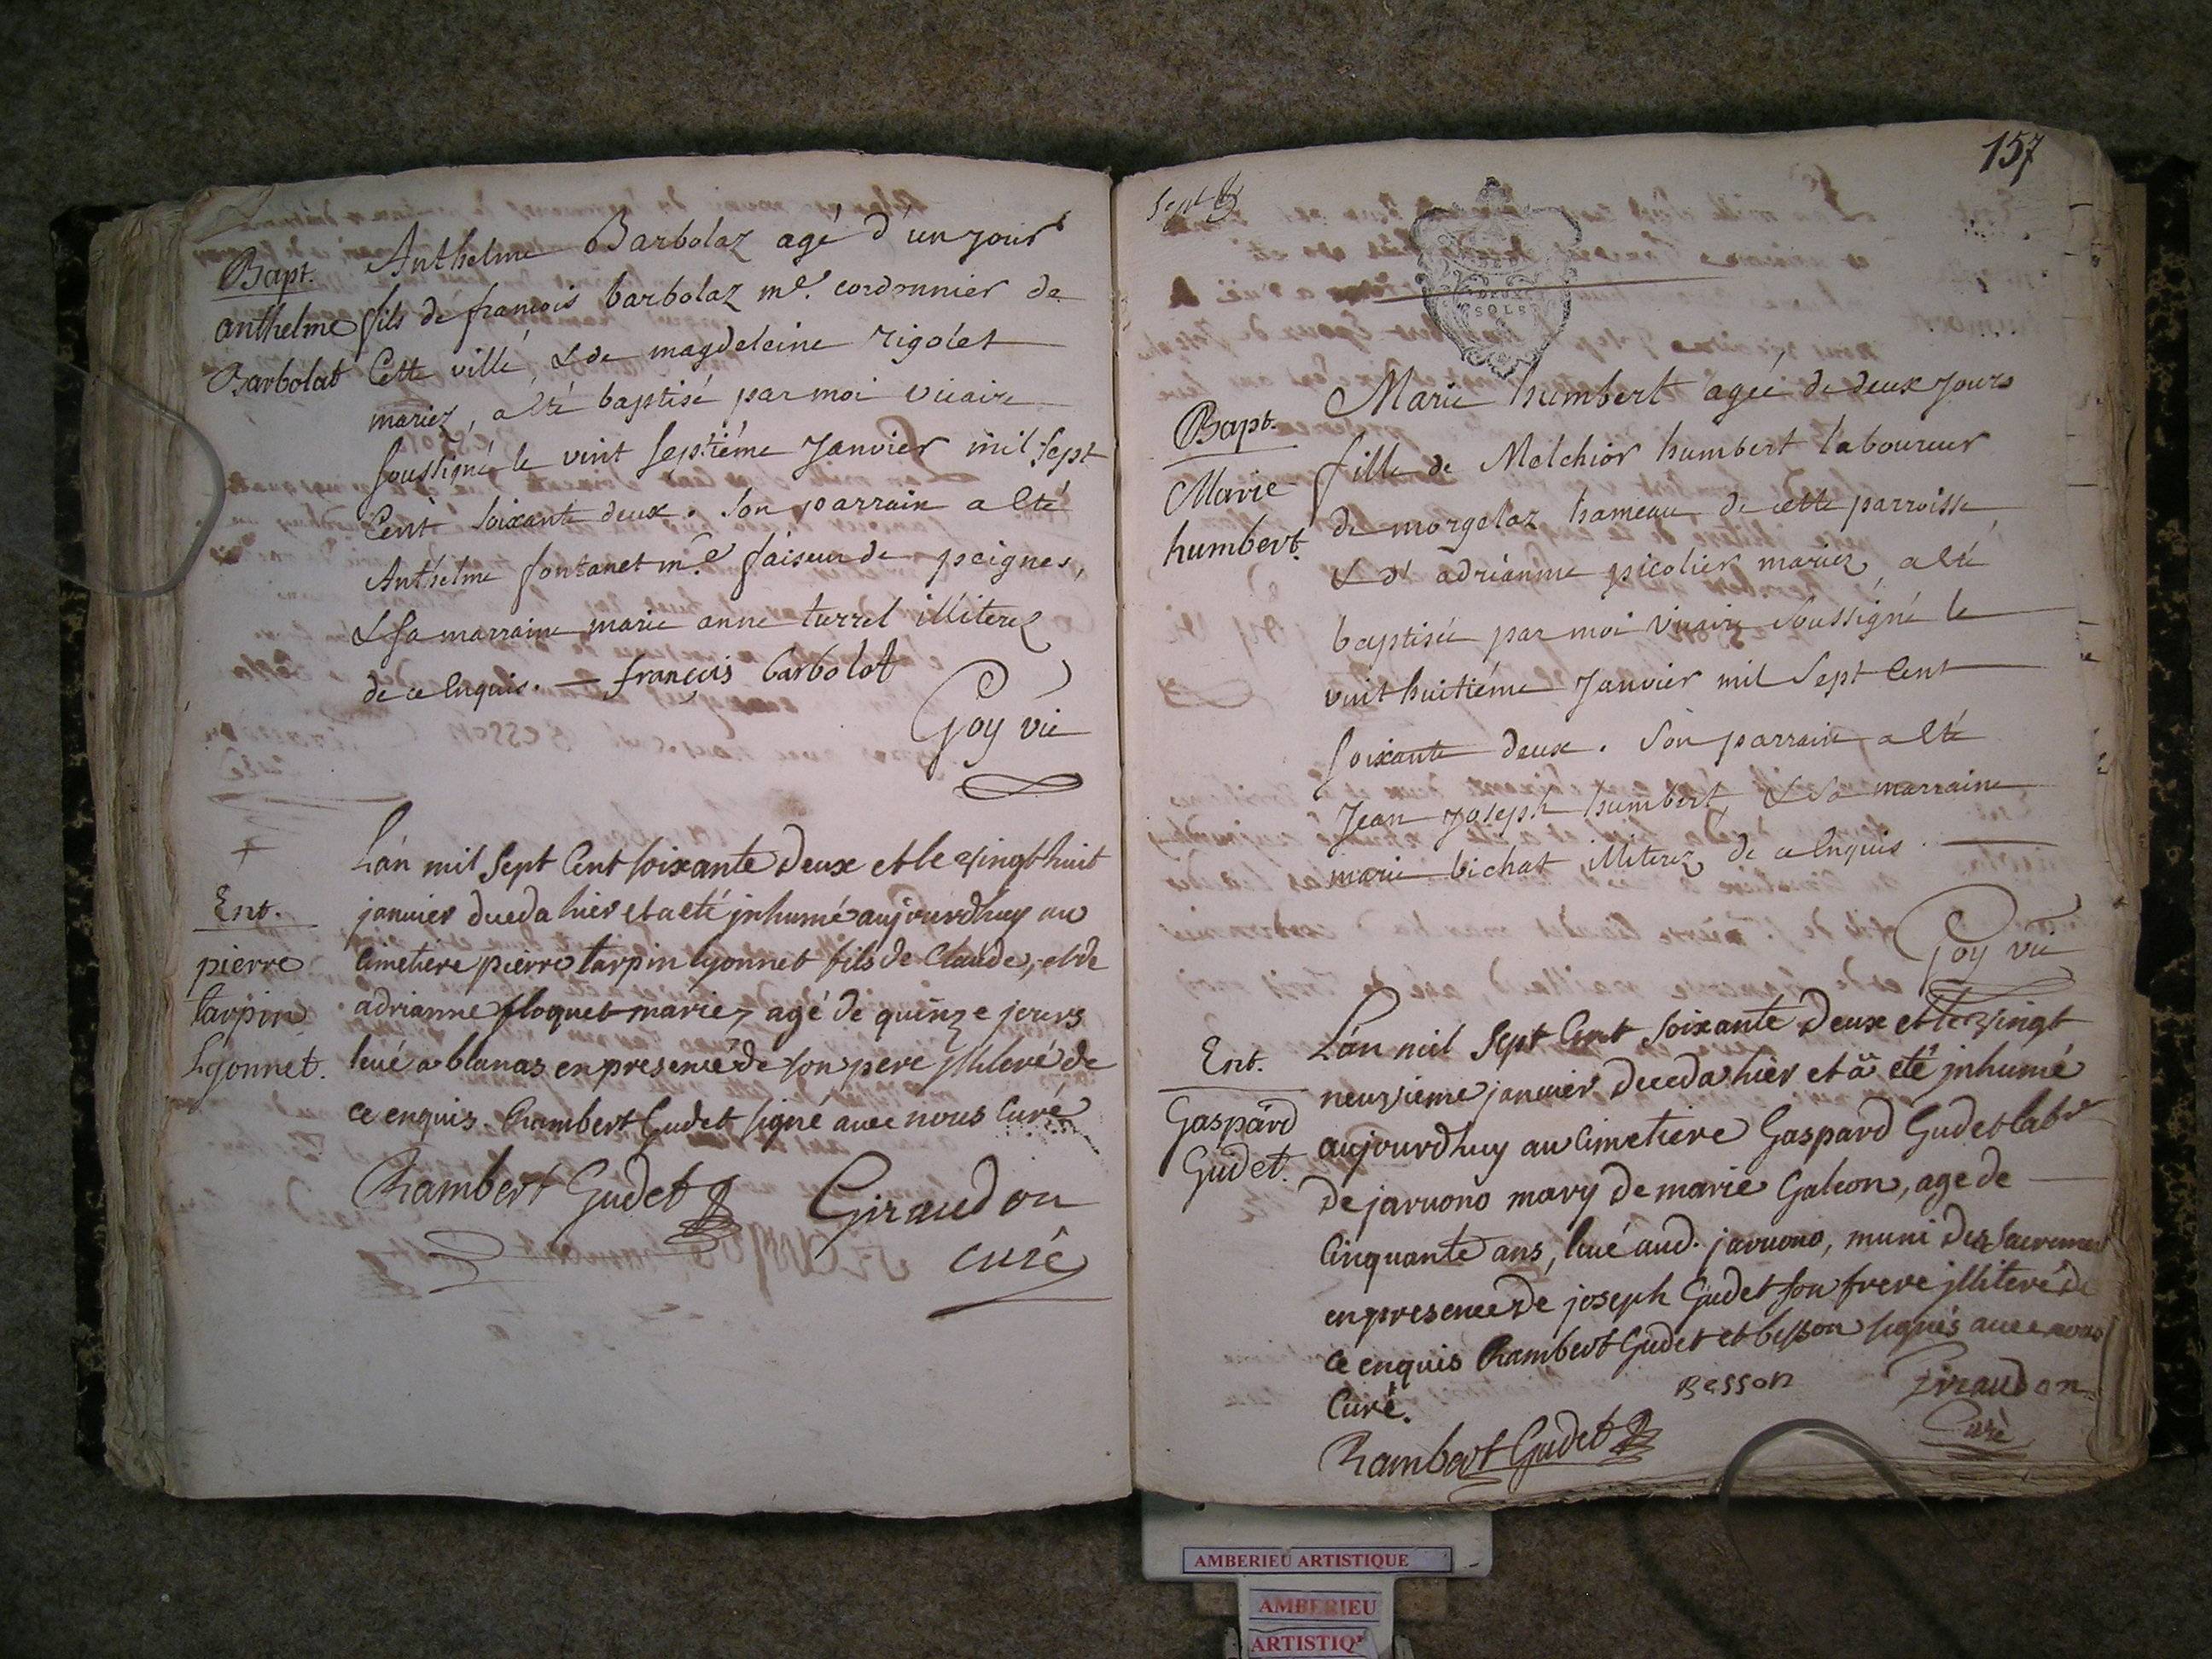 Bapt.
anthelme
Barbolat
Anthelme Barbolaz agé d'un jour
fils de francois barbolaz me. cordonnier de
Cette ville, & de magdeleine rigolet
mariez, a eté baptisé par moi vicaire
soussigné le vint septiéme Janvier mil sept
Cent soixante deux. Son parrain a eté
Anthelme fontanet me. faiseur de peignes,
& sa marraine marie anne turrel illiterez
de ce enquis. — françois barbolat
Goy vic
Ent.
pierre
tarpin
Lyonnet.
L'an mil sept Cent soixante deux et le vingt huit
janvier deceda hier et a eté jnhumé aujourdhuy au
Cimetiere pierre tarpin lyonnet fils de Claude, et de
adrianne floquet mariez, agé de quinze jours
levé a blanas en presence de son pere jlliteré de
ce enquis. Rambert Gudet signé avec nous Curé
Rambert Gudet
Giraudon
curé
157
sept
SOLS
Bapt.
Marie
humbert.
Marie humbert agée de deux jours
fille de Melchior humbert laboureur
de morgelaz hameau de cette parroisse
& d'adrianne picolier mariez, a eté
baptisée par moi vicaire soussigné le
vint huitiéme Janvier mil sept cent
soixante deux. Son parrain a eté
Jean Joseph humbert, & sa marraine
marie bichat illiterez de ce enquis.
Goy vic
Ent.
Gaspard
Gudet.
L'an mil sept Cent soixante deux et le vingt
neuvieme janvier deceda hier et a eté jnhumé
aujourdhuy au Cimetiere Gaspard Gudet labr
de jaruono mary de marie Galeon, age de
Cinquante ans, levé aud. jaruono, muni des sacremens
en presence de joseph Gudet son frere jlliteré de
ce enquis Rambert Gudet et besson signés avec nous
Curé.
Besson
Giraudon
Curé
Rambert Gudet
AMBERIEU ARTISTIQUE
AMBERIEU
ARTISTIQ